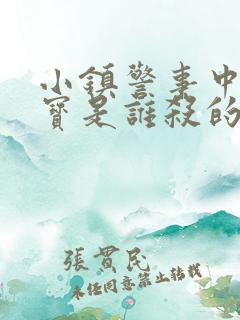 小鎮警事中
寶是誰殺的
張貫民
未任同意禁止轉載